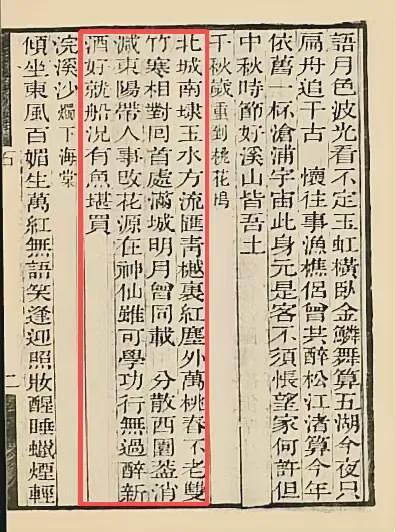 語月色波光看不定玉虹橫臥金鱗舞算五湖今夜只
扁舟追千古　懷往事漁樵侶曾共醉松江渚算今年
依舊一杯滄浦宇宙此身元是客不須悵望家何許但
中秋時節好溪山皆吾土
千秋歲重到桃花塢
北城南埭玉水方流匯青樾裏紅塵外萬桃春不老雙
竹寒相對回首處滿城明月曾同載　分散西園蓋消
減東陽帶人事改花源在神仙雖可學功行無過醉新
酒好就船況有魚堪買
浣溪沙燭下海棠
傾坐東風百媚生萬紅無語笑逢迎照妝醒睡蠟煙輕
二